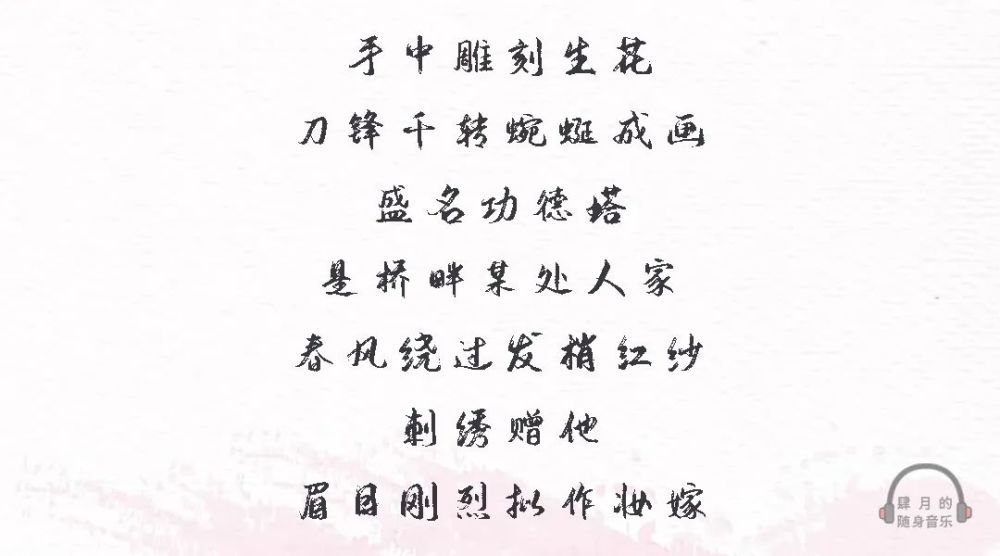 手中雕刻生花
刀锋千转蜿蜒成画
盛名功德塔
是桥畔某处人家
春风绕过发梢红纱
刺绣赠他
眉目刚烈拟作妆嫁
肆月的
随身音乐